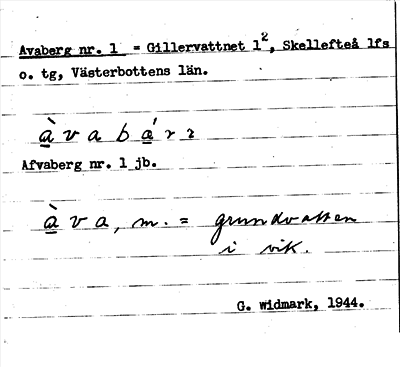 Avaberg nr. 1 = Gillervattnet 1², Skellefteå lfs
o. tg, Västerbottens län.
à v a b á r r
Afvaberg nr. 1 jb.
à v a, m. = grundvatten
i vik.
G. Widmark, 1944.